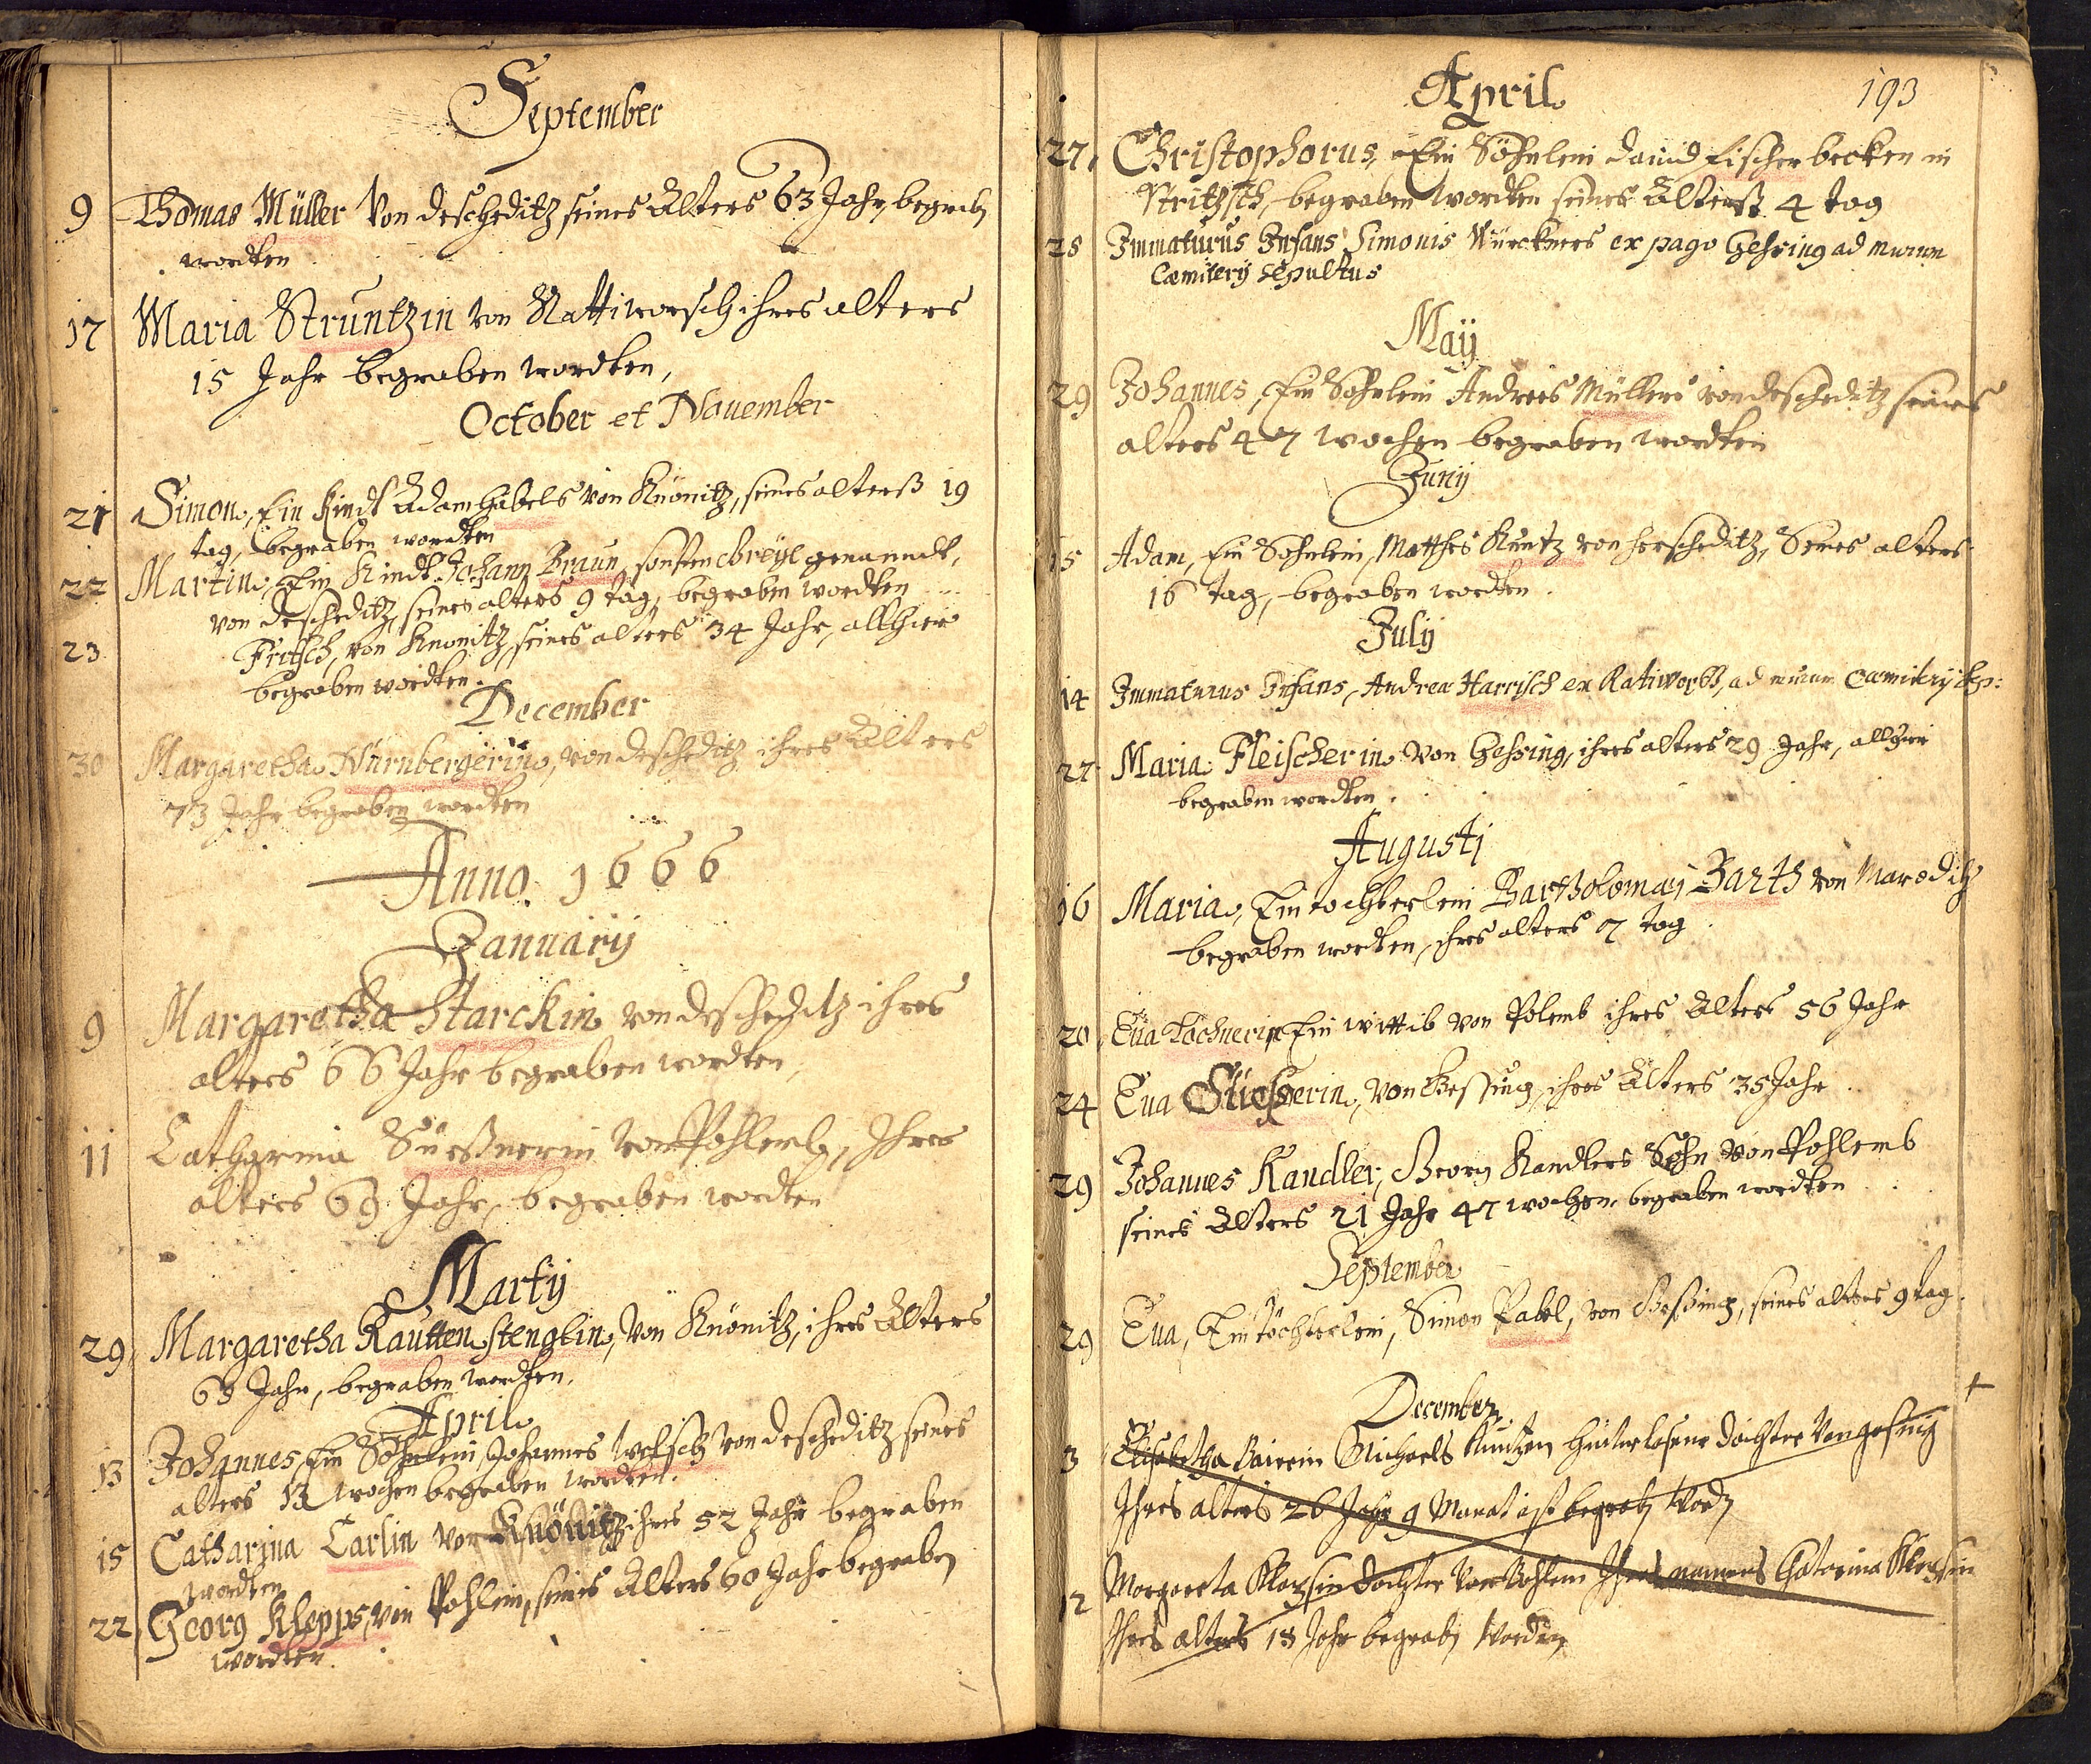 September
9 Thomas Müller Von descheditz seines Alters 63 Jahr, begrab
wordten
17 Maria Struntzin von Rattiworsch ihres alters
15 Jahr begraben wordten,
October et November
21 Simon, Ein Kindt Adam Häbels von Knönitz, seines alterß 19
tag, begraben wordten
22 Martin, Ein Kindt Johann Braun, sonsten breÿl genanndt,
von descheditz, seines alters 9 tag, begraben wordten
23 Fritsch, von Knonitz, seines alters 34 Jahr, allhier
begraben wordten.
December
30 Margaretha Nürnbergerin, von descheditz ihres Alters
73 Jahr begraben wordten
Anno. 1666
Januarÿ
9 Margaretha Starckin von descheditz ihres
alters 66 Jahr begraben wordten,
11 Catharina Süeßnerin von Pohlemb, Ihres
alters 69 Jahr, begraben wordten
Martÿ
29, Margaretha Rauttenstenglin, Von Knönitz, ihres Alters
63 Jahr, begraben wordten,
April
13 Johannes, Ein Söhnlein, Johannes von descheditz seines
alters 13 wochen begraben wordten.
15 Catharina Carlin von Knönitz ihres 52 Jahr begraben
wordten
22, Georg Klepps, von Pohlem, seines Alters 60 Jahr begraben
wordten.
April 193
27, Christophorus, Ein Söhnlein dauid fischer becken in
Stritzsch, begraben wordten seines Alterß 4 tag
28 Immaturus Infans Simonis Würckners ex pago Gessing ad murum
Cæmiterÿ sepultus
Maÿ
29 Johannes, Ein Söhnlein Andrees Müllers von descheditz seines
alters 47 wochen begraben wordten
Junÿ
15 Adam, Ein Söhnlein, Matthes Kuntz von herscheditz, Seines alters
16 tag, begraben wordten.
Julÿ
14 Immaturus Infans, Andreæ Harrisch ex Ratiworß, ad murum Cæmiterÿ sep:
27 Maria Fleischerin Von Gessing, ihres alters 29 Jahr, allhier
begraben wordten.
Augustj
16 Maria, Ein tochterlein Bartholomæj Barth von Maroditz
begraben wordten, ihres alters 7 tag
20 Eua Lochnerin Ein wittib von Polemb ihres Alters 56 Jahr
24 Eua Süeßnerin, von Gessing, ihres Alters 35 Jahr
29 Johannes Kandler, Georg Kandlers Sohn von Pohlemb
seines Alters 21 Jahr 47 wochen begraben wordten
September
29 Eua, Ein töchterlein, Simon Pabel, von Gessing, seines alters 9 tag.
December
3 Elisabetha Baierin Michaels Kuntzen hinterlasene dochter Von gessing
Ihres alters 26 Jahr 9 Monat ist begrab word
12 Margareta dochter Von Pohlem Ihres namens Catarina
Ihres alters 18 Jahr begrab worden